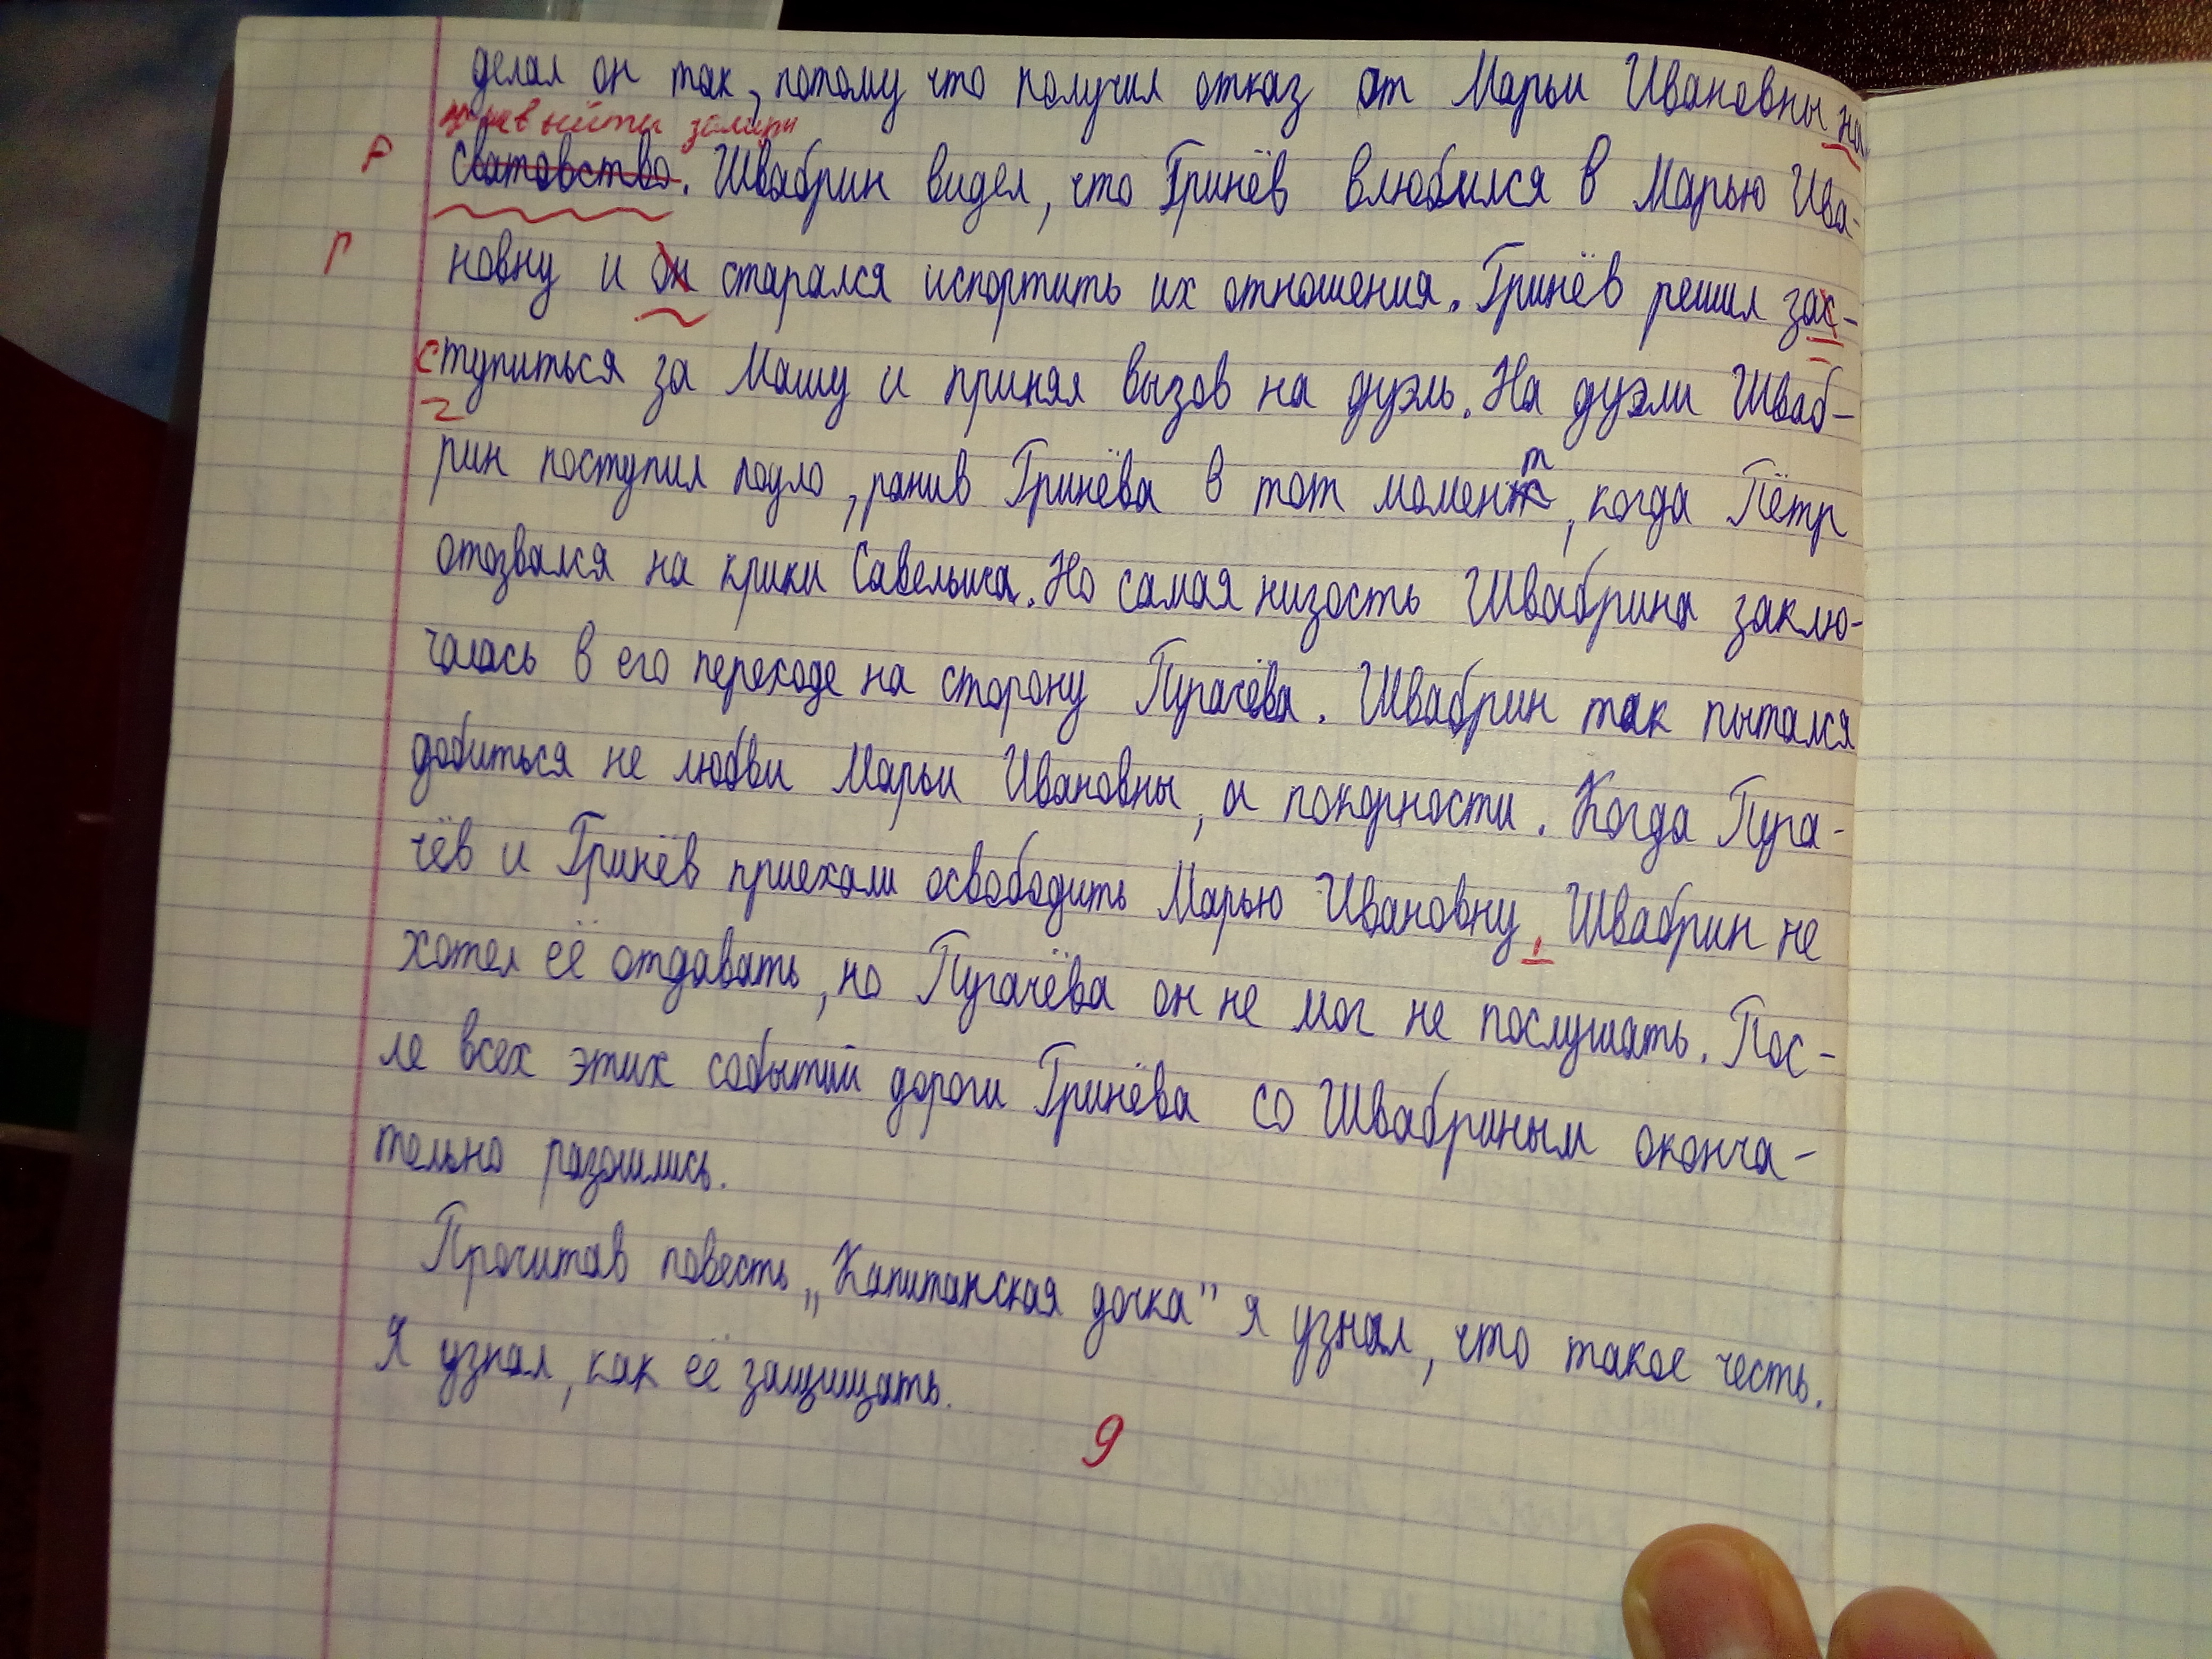 делал он так, потому что получил отказ от Марьи Ивановны на
выйти замуж
Р сватовство. Швабрин видел, что Гринёв влюбился в Марью Ива-
Р новну и он старался испортить их отношения. Гринёв решил зас-
ступиться за Машу и принял вызов на дуэль. На дуэли Шваб-
рин поступил подло, ранив Гринёва в тот момент, когда Пётр
отозвался на крики Савельича. Но самая низость Швабрина заклю-
чалась в его переходе на сторону Пугачёва. Швабрин так пытался
добиться не любви Марьи Ивановны, а покорности. Когда Пуга-
чёв и Гринёв приехали освободить Марью Ивановну, Швабрин не
хотел её отдавать, но Пугачёва он не мог не послушать. Пос-
ле всех этих событий дороги Гринёва со Швабриным оконча-
тельно разошлись.
Прочитав повесть „Капитанская дочка" я узнал, что такое честь.
Я узнал, как её защищать.
9